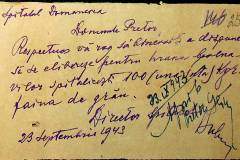 Spitalul Domanevca
Domnule Pretor
Respectuos vă rog să binevoiți a dispune
să se elibereze pentru hrana bolna
vilor spitalizați 100 (una sută) Kgr.
faina de grâu.
Director
23 Septembrie 1943
23.IX.1943